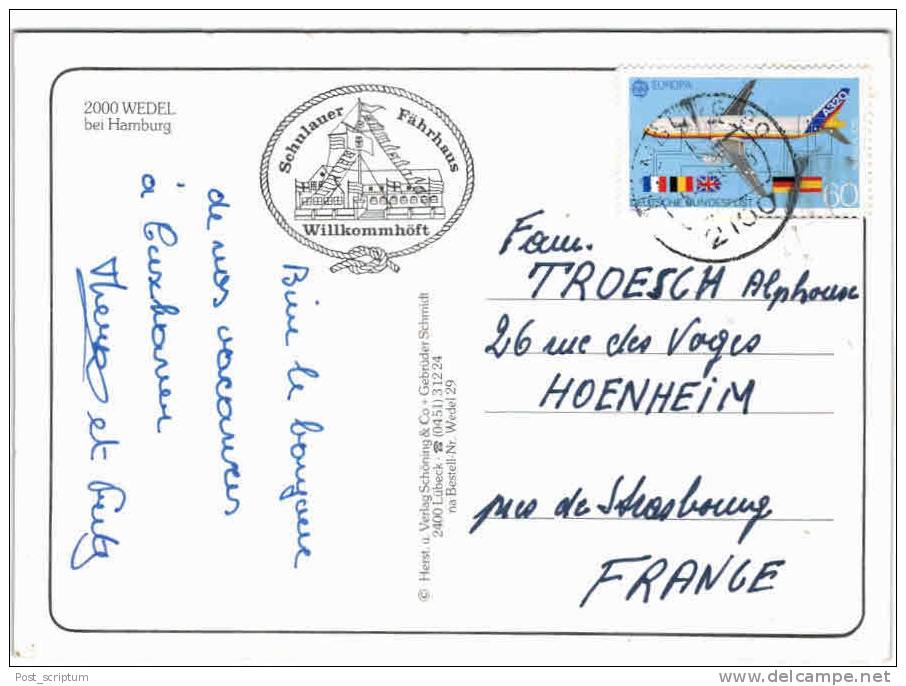 2000 WEDEL
bei Hamburg
Schulauer Fährhaus
Willkommhöft
EUROPA
A320
60
DEUTSCHE BUNDESPOST
2190
Bien le bonjour
de nos vacances
à Cuxhaven
et Fritz
© Herst. u. Verlag Schöning & Co + Gebrüder Schmidt
2400 Lübeck · ☎ (0451) 3 12 24
na Bestell-Nr. Wedel 29
Fam.
TROESCH Alphonse
26 rue des Voges
HOENHEIM
près de Strasbourg
FRANCE
Post_scriptum
www.delcampe.net